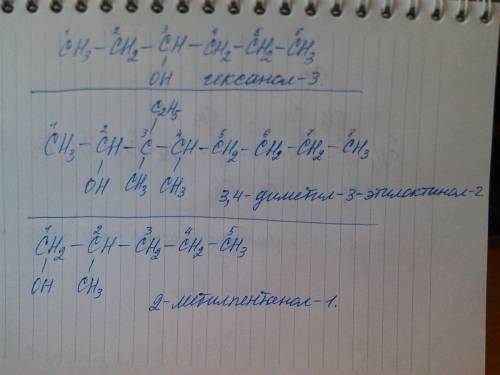 ¹CH₃-²CH₂-³CH-⁴CH₂-⁵CH₂-⁶CH₃
OH гексанол-3
C₂H₅
¹CH₃-²CH-³C-⁴CH-⁵CH₂-⁶CH₂-⁷CH₂-⁸CH₃
OH CH₃ CH₃
3,4-диметил-3-этилоктанол-2
¹CH₂-²CH-³CH₂-⁴CH₂-⁵CH₃
OH CH₃
2-метилпентанол-1.